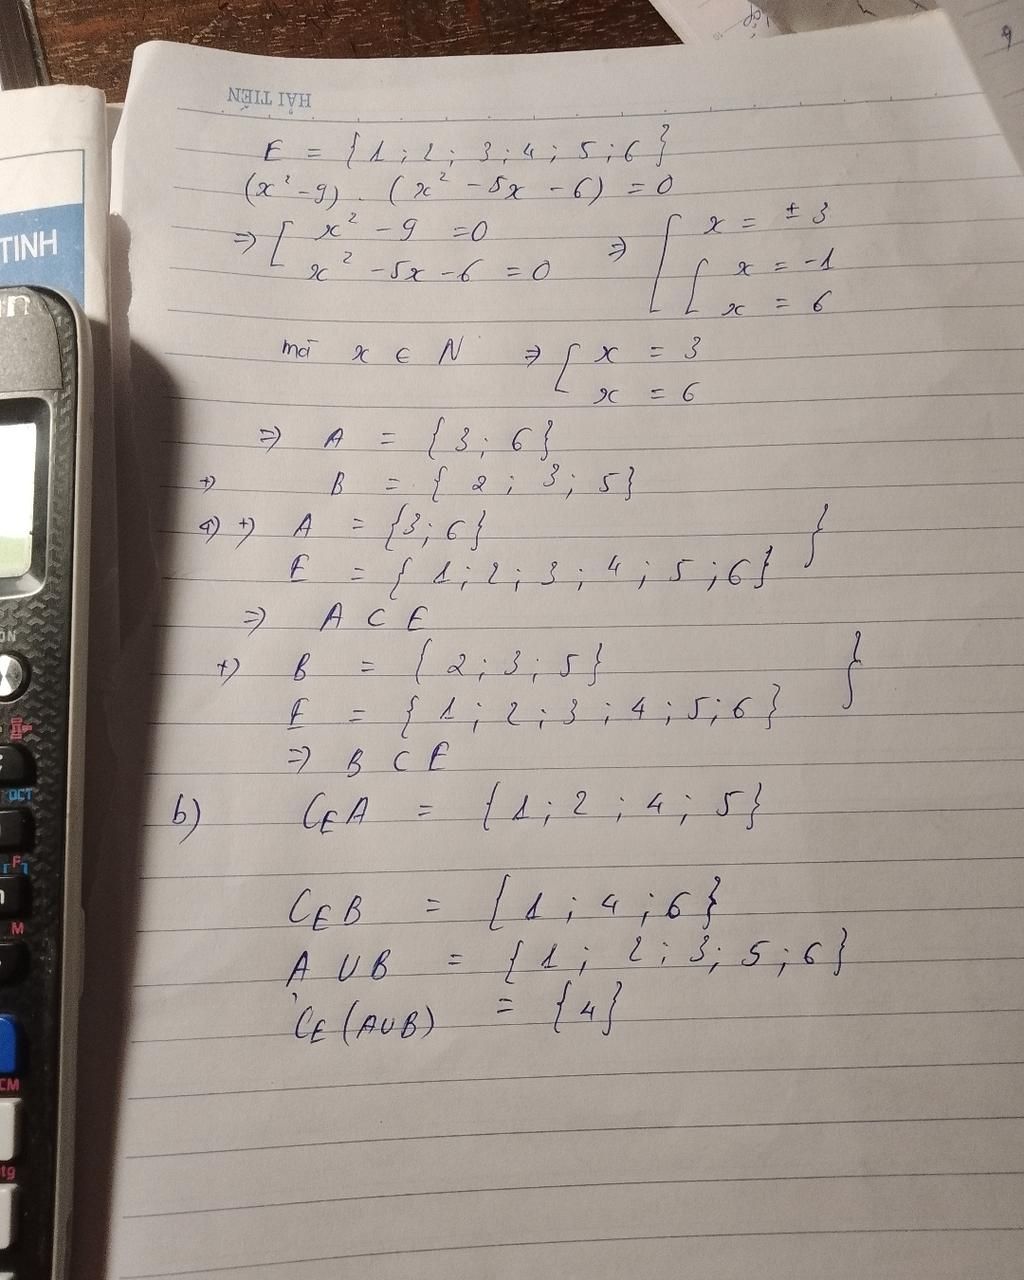 HẢI TIẾN
E = { 1 ; 2 ; 3 ; 4 ; 5 ; 6 }
(x² - 9) . (x² - 5x - 6) = 0
⇒ [ x² - 9 = 0 ⇒ [ x = ± 3
x² - 5x - 6 = 0 [ x = -1
x = 6
mà x ∈ N ⇒ [ x = 3
x = 6
⇒ A = { 3 ; 6 }
+) B = { 2 ; 3 ; 5 }
a) +) A = { 3 ; 6 } }
E = { 1 ; 2 ; 3 ; 4 ; 5 ; 6 }
⇒ A ⊂ E
+) B = { 2 ; 3 ; 5 } }
E = { 1 ; 2 ; 3 ; 4 ; 5 ; 6 }
⇒ B ⊂ E
b) C_E A = { 1 ; 2 ; 4 ; 5 }
C_E B = { 1 ; 4 ; 6 }
A ∪ B = { 1 ; 2 ; 3 ; 5 ; 6 }
C_E (A ∪ B) = { 4 }
TINH
ON
OCT
F
M
CM
tg